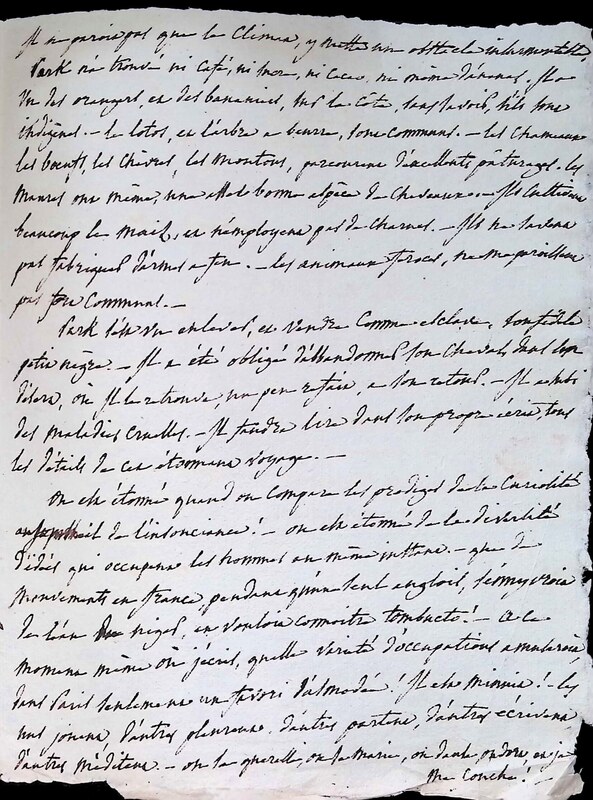 Il ne parois pas que le Climea, y mette un obstacle insurmontable.
Park n'a trouvé ni café, ni sucre, ni Cacao, ni même d'ananas. Il a
vu des orangers, et des bananiers, sur la côte, sans savoir, s'ils sont
indigènes. – le lotos, et l'arbre a beurre, sont Communs. – les Chameaux
les bœufs, les Chèvres, les moutons, parcourent d'excellents pâturages. les
maures ont même, une asses bonne espèce de Chevaux. – Ils Cultivent
beaucoup le maïs, et n'employent pas de Charues. – Ils ne savent
pas fabriquer d'armes a feu. – les animaux féroces, ne me paroissent
pas fort Communs. –
Park s'est vu enlever, et vendre Comme esclave, son fidele
petit nègre. – Il a été obligé d'abbandonner son Cheval, dans un
désert, où Il le retrouve, un peu refait, a son retour. – Il a subi
des maladies Cruelles. – Il faudra lire dans son propre écrit, tous
les détails de cet étonnant voyage. –
On est étonné quand on Compare les prodiges de la Curiosité
au sommeil de l'insouciance! – on est étonné de la diversité
d'idées qui occupent les hommes au même instant. – que de
mouvements en france pendant qu'un seul anglois,
de l'eau du niger, et vouloit connoitre tombucto! – a ce
moment même où j'écris, quelle variété d'occupations
dans Paris seulement Il est minuit! – les
uns jouent, d'autres pleurent, d'autres partent, d'autres écrivent
d'autres méditent. – on se querelle, on se marie, on danse, on dort, et je
me Couche! –